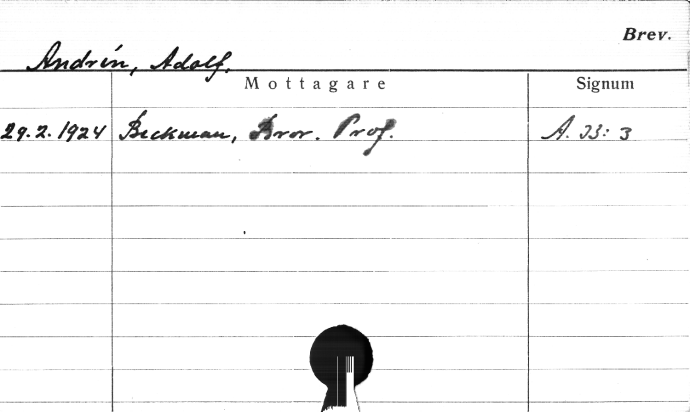 Brev.
Andrén, Adolf.
Mottagare Signum
29.2.1924 Beckman, Bror. Prof. A. 33: 3